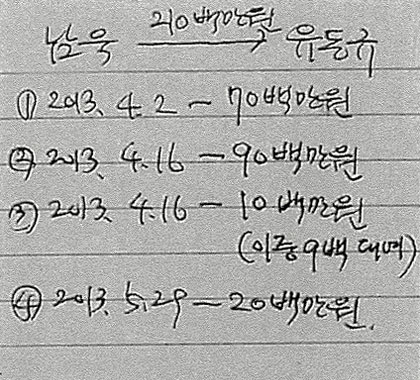 남욱 210백만원→ 유동규
① 2013. 4. 2 – 70백만원
② 2013. 4.16 – 90백만원
③ 2013. 4.16 – 10백만원
(이중 9백 대여)
④ 2013. 5.29 – 20백만원.